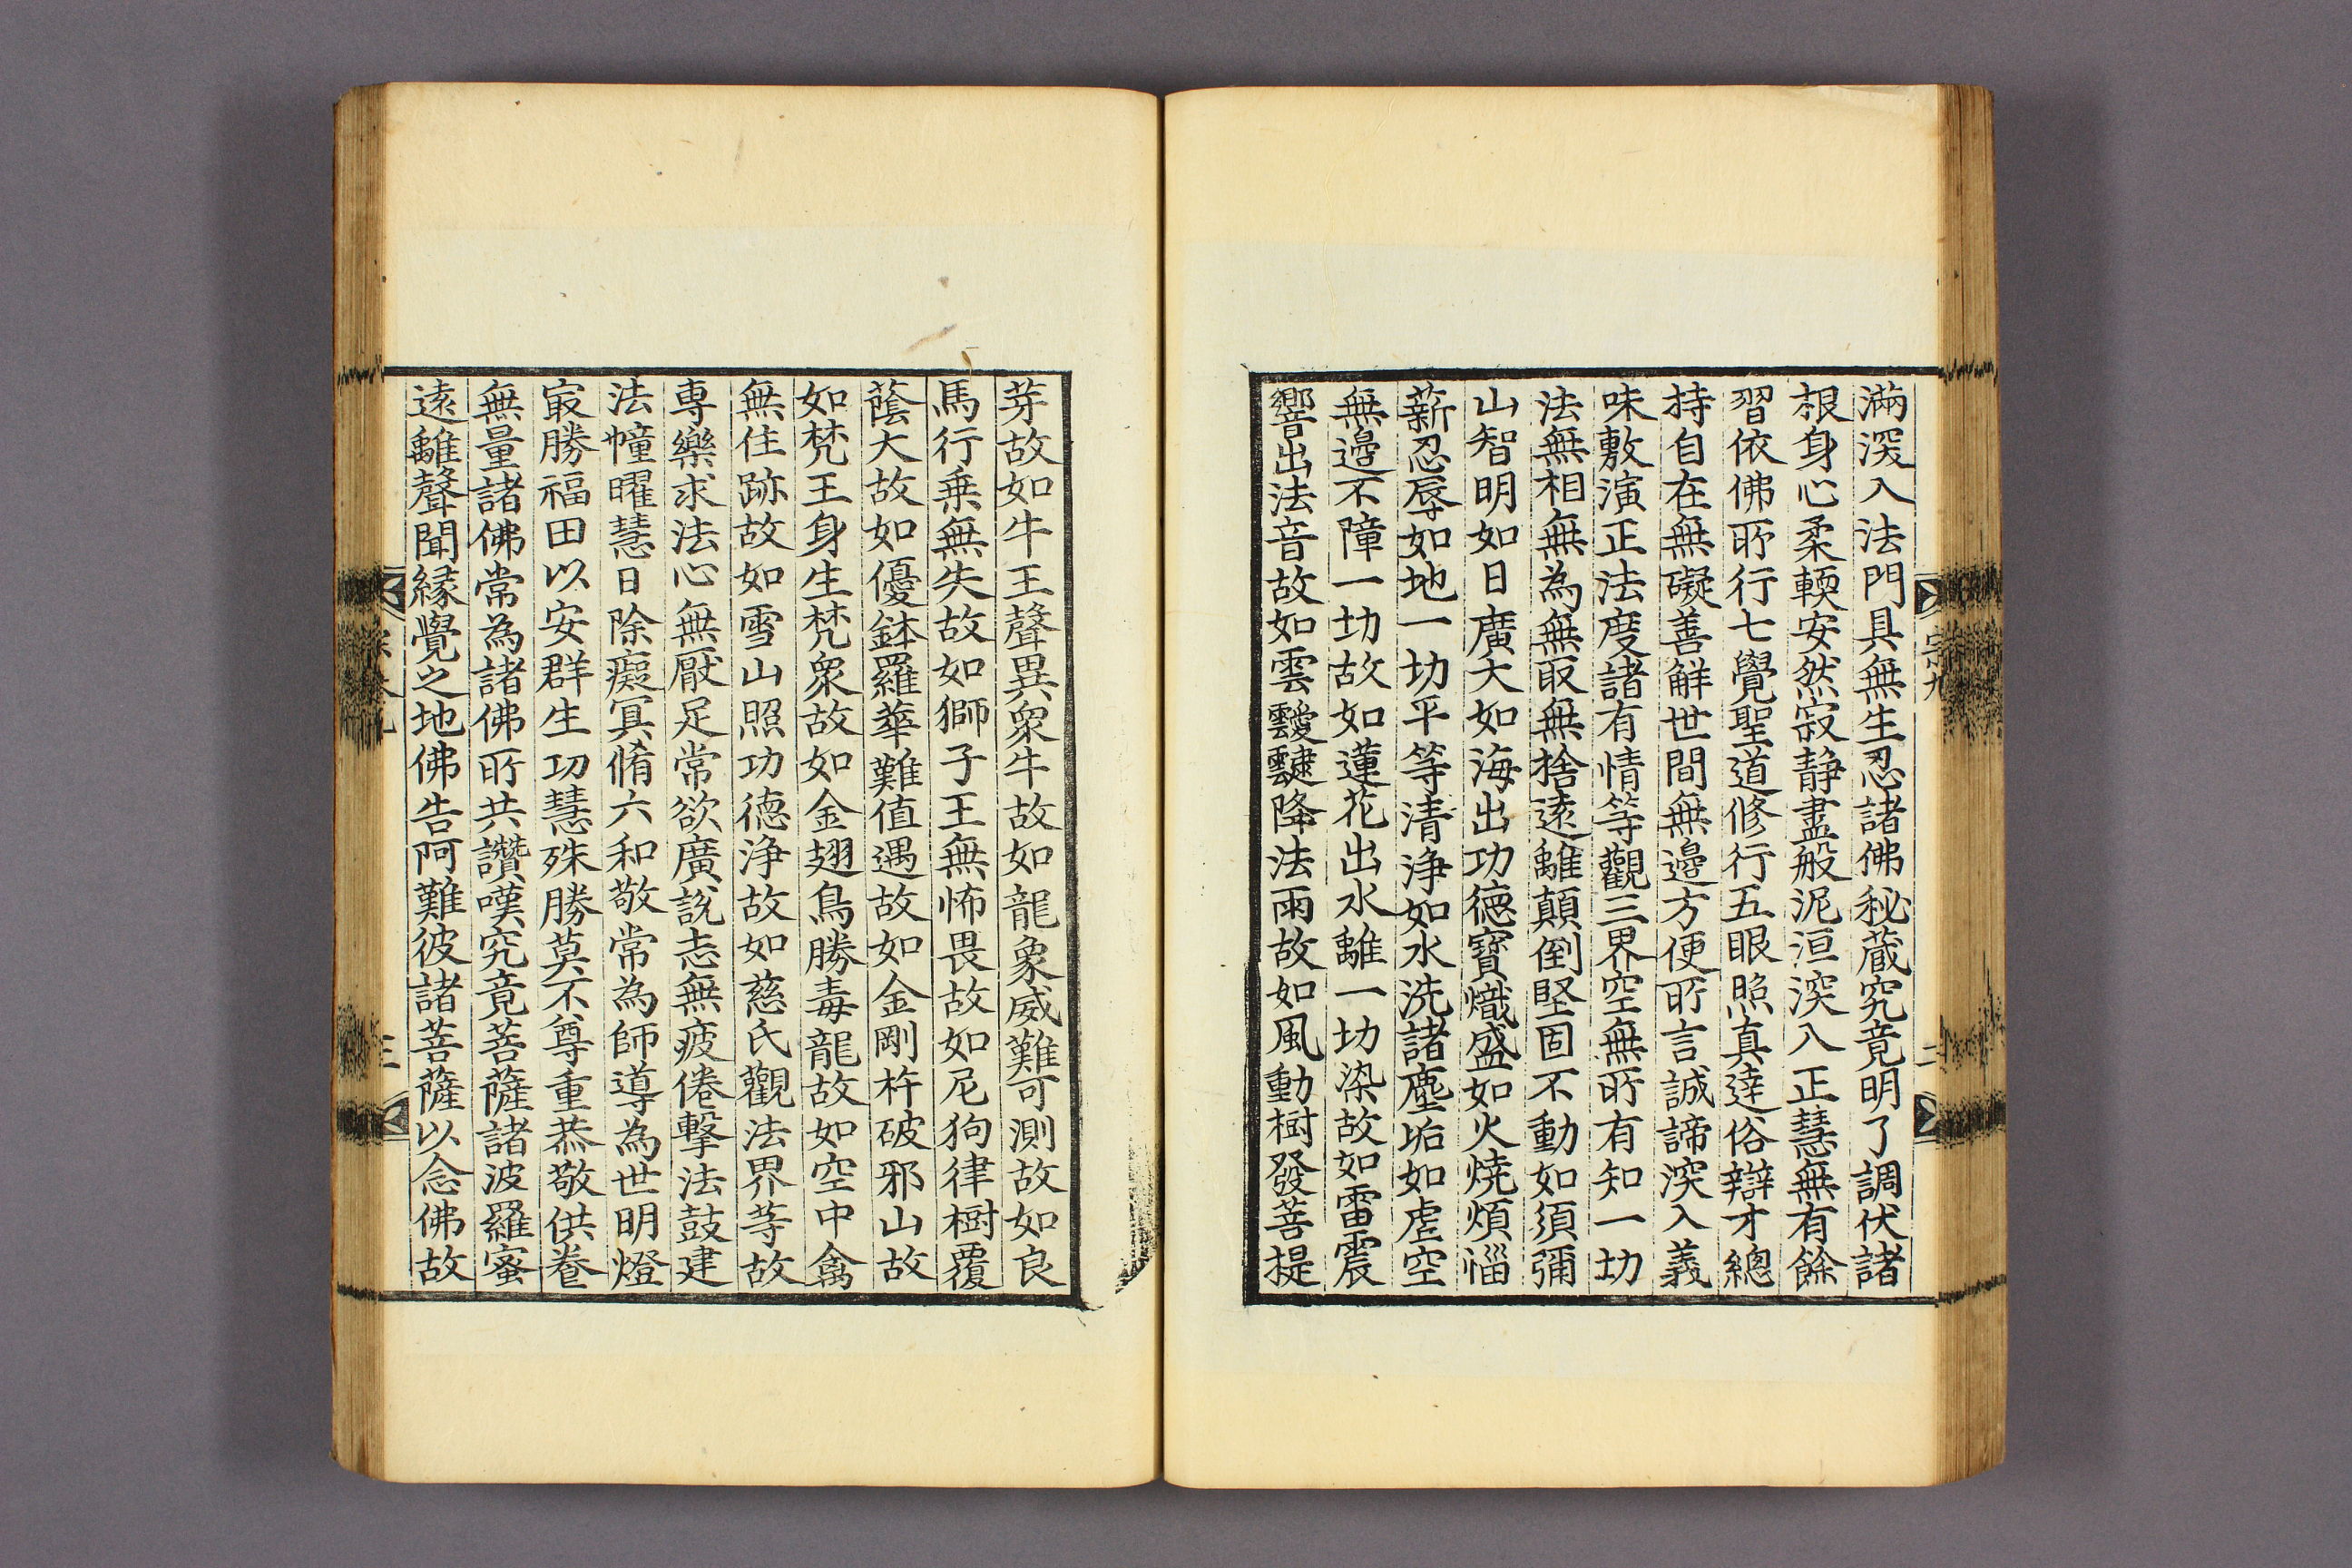 滿深入法門具無生忍諸佛秘蔵究竟明了調伏諸
根身心柔輭安然寂静盡般泥洹深入正慧無有餘
習依佛所行七覺聖道修行五眼照真達俗辯才總
持自在無礙善解世間無邊方便所言誠諦深入義
味敷演正法度諸有情等觀三界空無所有知一切
法無相無為無取無捨遠離顛倒堅固不動如須彌
山智明如日廣大如海出功德寶熾盛如火燒煩惱
薪忍辱如地一切平等清浄如水洗諸塵垢如虗空
無邊不障一切故如蓮花出水離一切染故如雷震
響出法音故如雲靉靆降法雨故如風動樹發菩提
芽故如牛王聲異衆牛故如龍象威難可測故如良
馬行乗無失故如獅子王無怖畏故如尼狗律樹覆
蔭大故如優鉢羅華難值遇故如金剛杵破邪山故
如梵王身生梵衆故如金翅鳥勝毒龍故如空中禽
無住跡故如雪山照功德浄故如慈氏觀法界等故
專樂求法心無厭足常欲廣說志無疲倦擊法鼓建
法幢曜慧日除癡冥脩六和敬常為師導為世明燈
最勝福田以安群生功慧殊勝莫不尊重恭敬供養
無量諸佛常為諸佛所共讚嘆究竟菩薩諸波羅蜜
遠離聲聞緣覺之地佛告阿難彼諸菩薩以念佛故
宗九
二
三